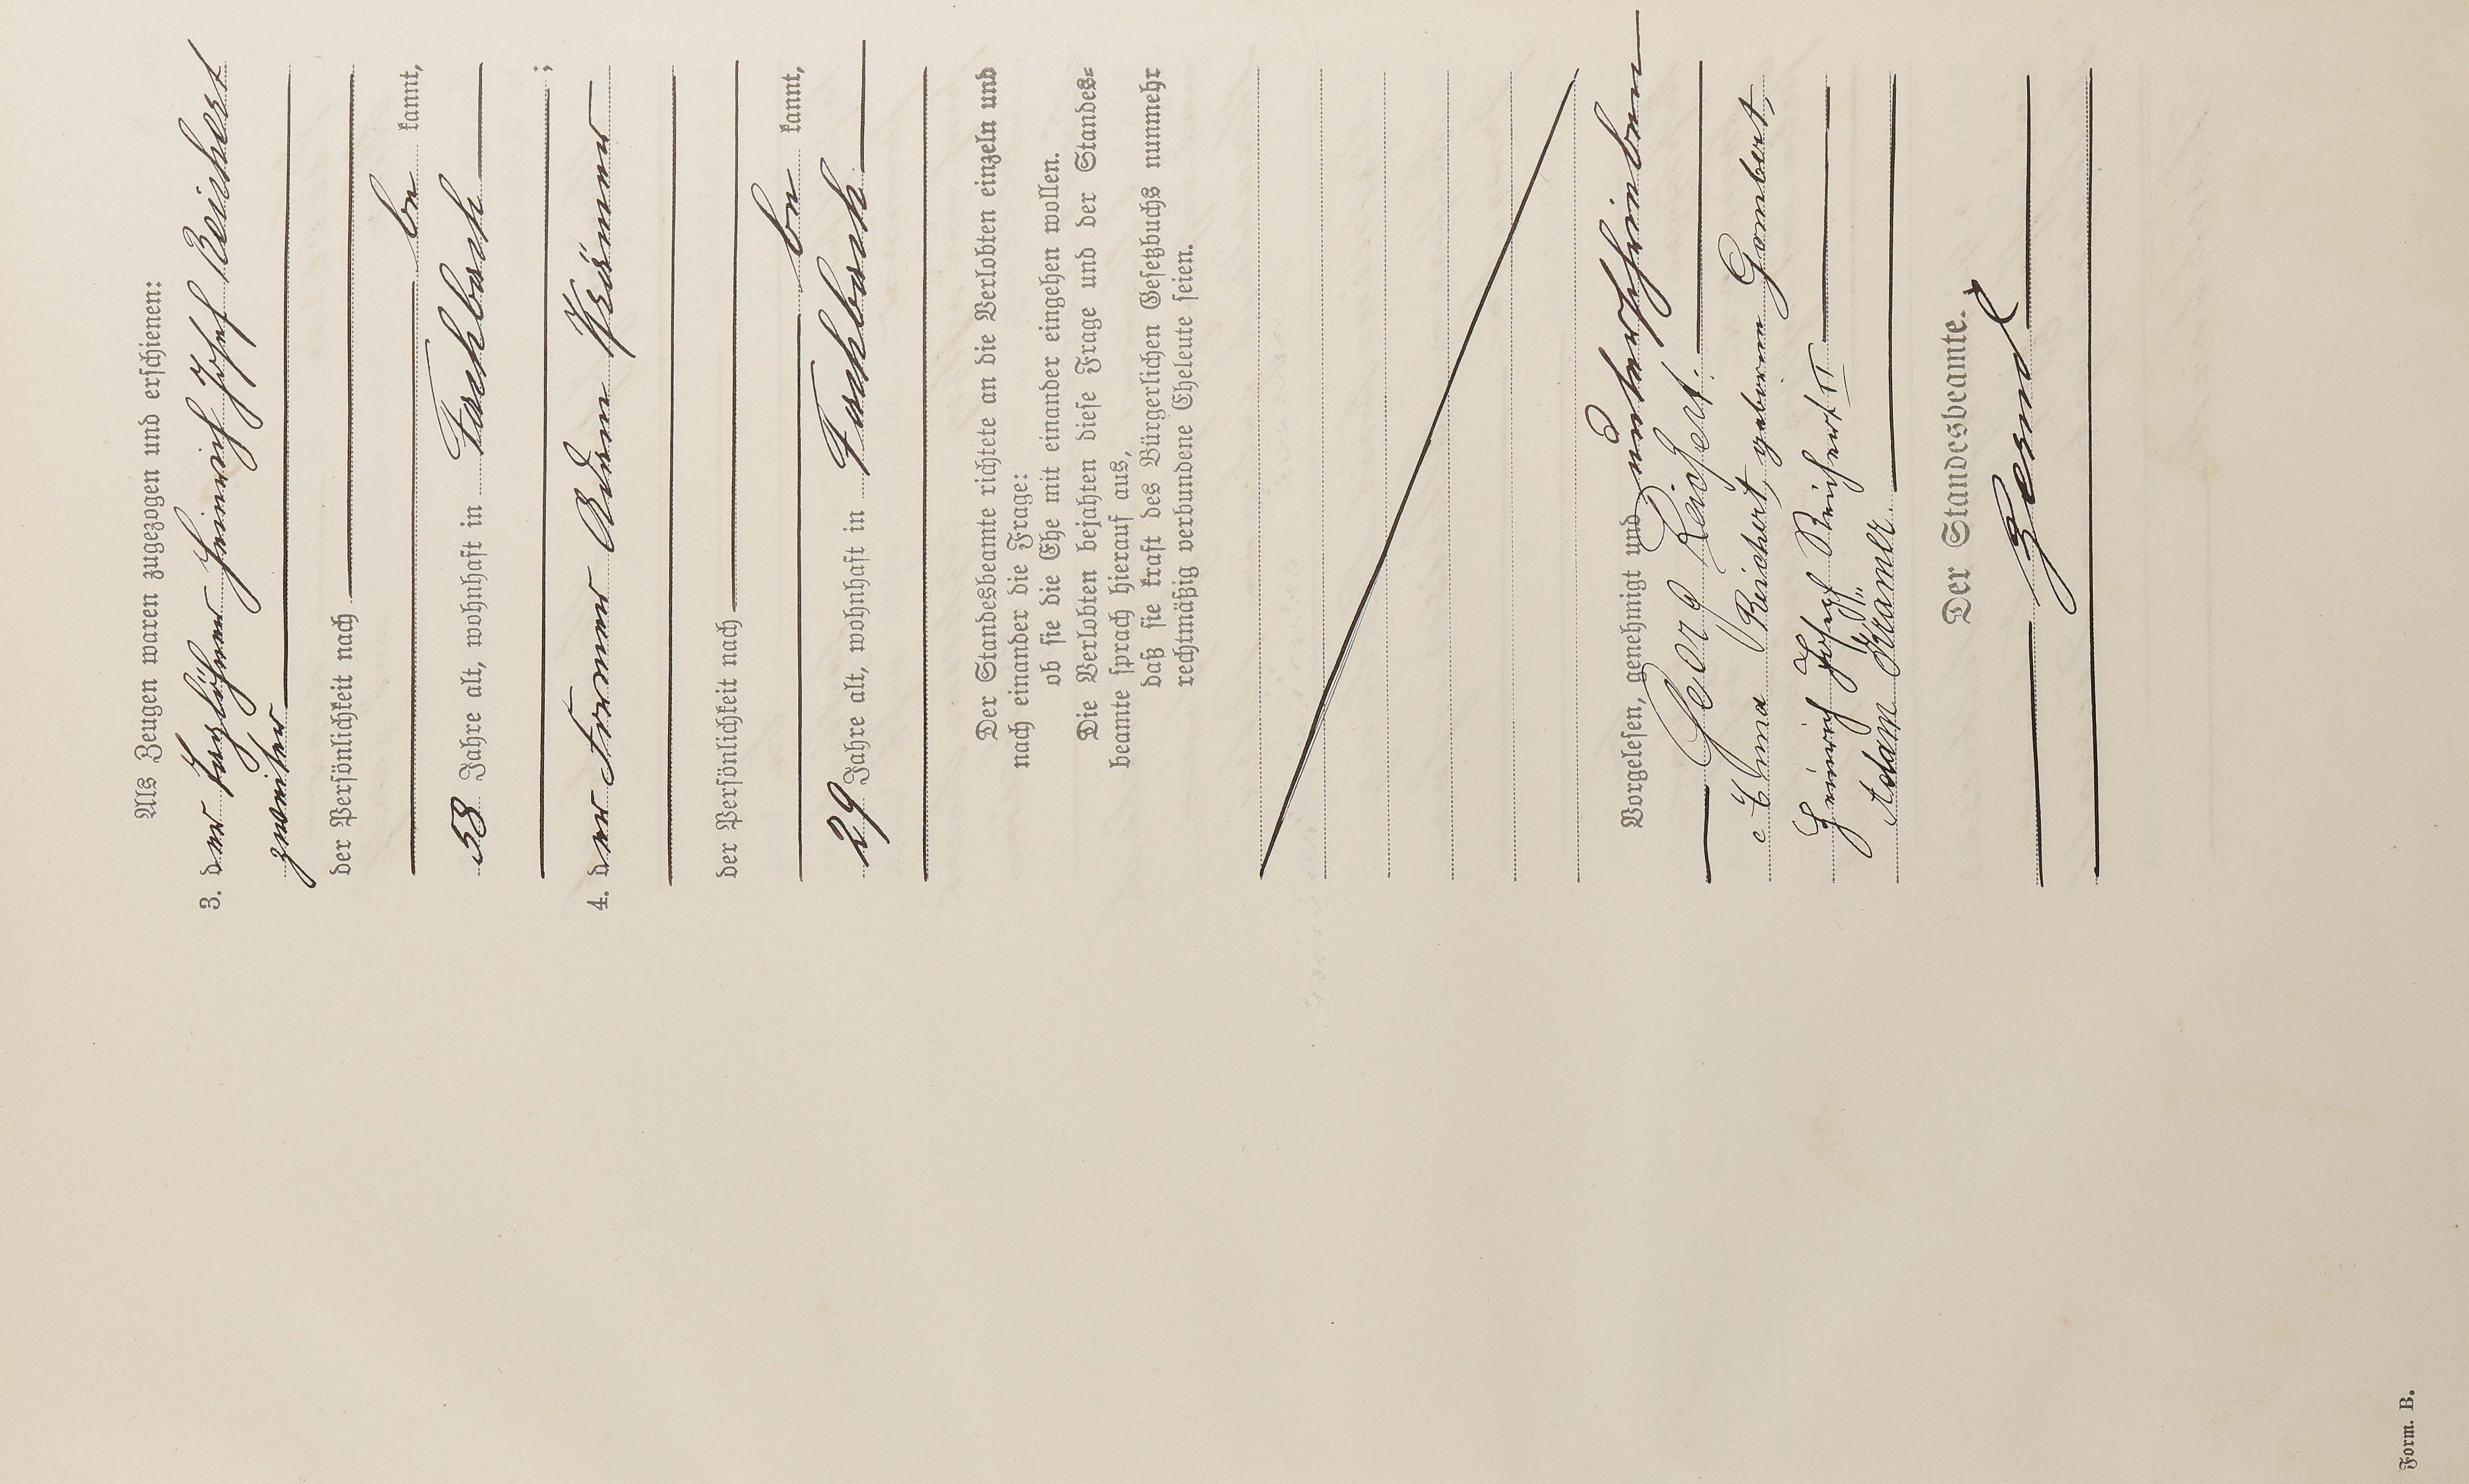 Als Zeugen waren zugezogen und erschienen:
3. der Taglöhner Heinrich Josef Reichert
zweiter
der Persönlichkeit nach
be kannt,
53 Jahre alt, wohnhaft in Fachbach
;
4. der Former Adam Krämer
der Persönlichkeit nach
be kannt,
29 Jahre alt, wohnhaft in Fachbach
Der Standesbeamte richtete an die Verlobten einzeln und
nach einander die Frage:
ob sie die Ehe mit einander eingehen wollen.
Die Verlobten bejahten diese Frage und der Standes=
beamte sprach hierauf aus,
daß sie kraft des Bürgerlichen Gesetzbuchs nunmehr
rechtmäßig verbundene Eheleute seien.
Vorgelesen, genehmigt und unterschrieben
Georg Reichert.
Emma Reichert, geborene Gombert,
Heinrich Josepf Reichert II
Adam Krämer.
Der Standesbeamte.
Form. B.